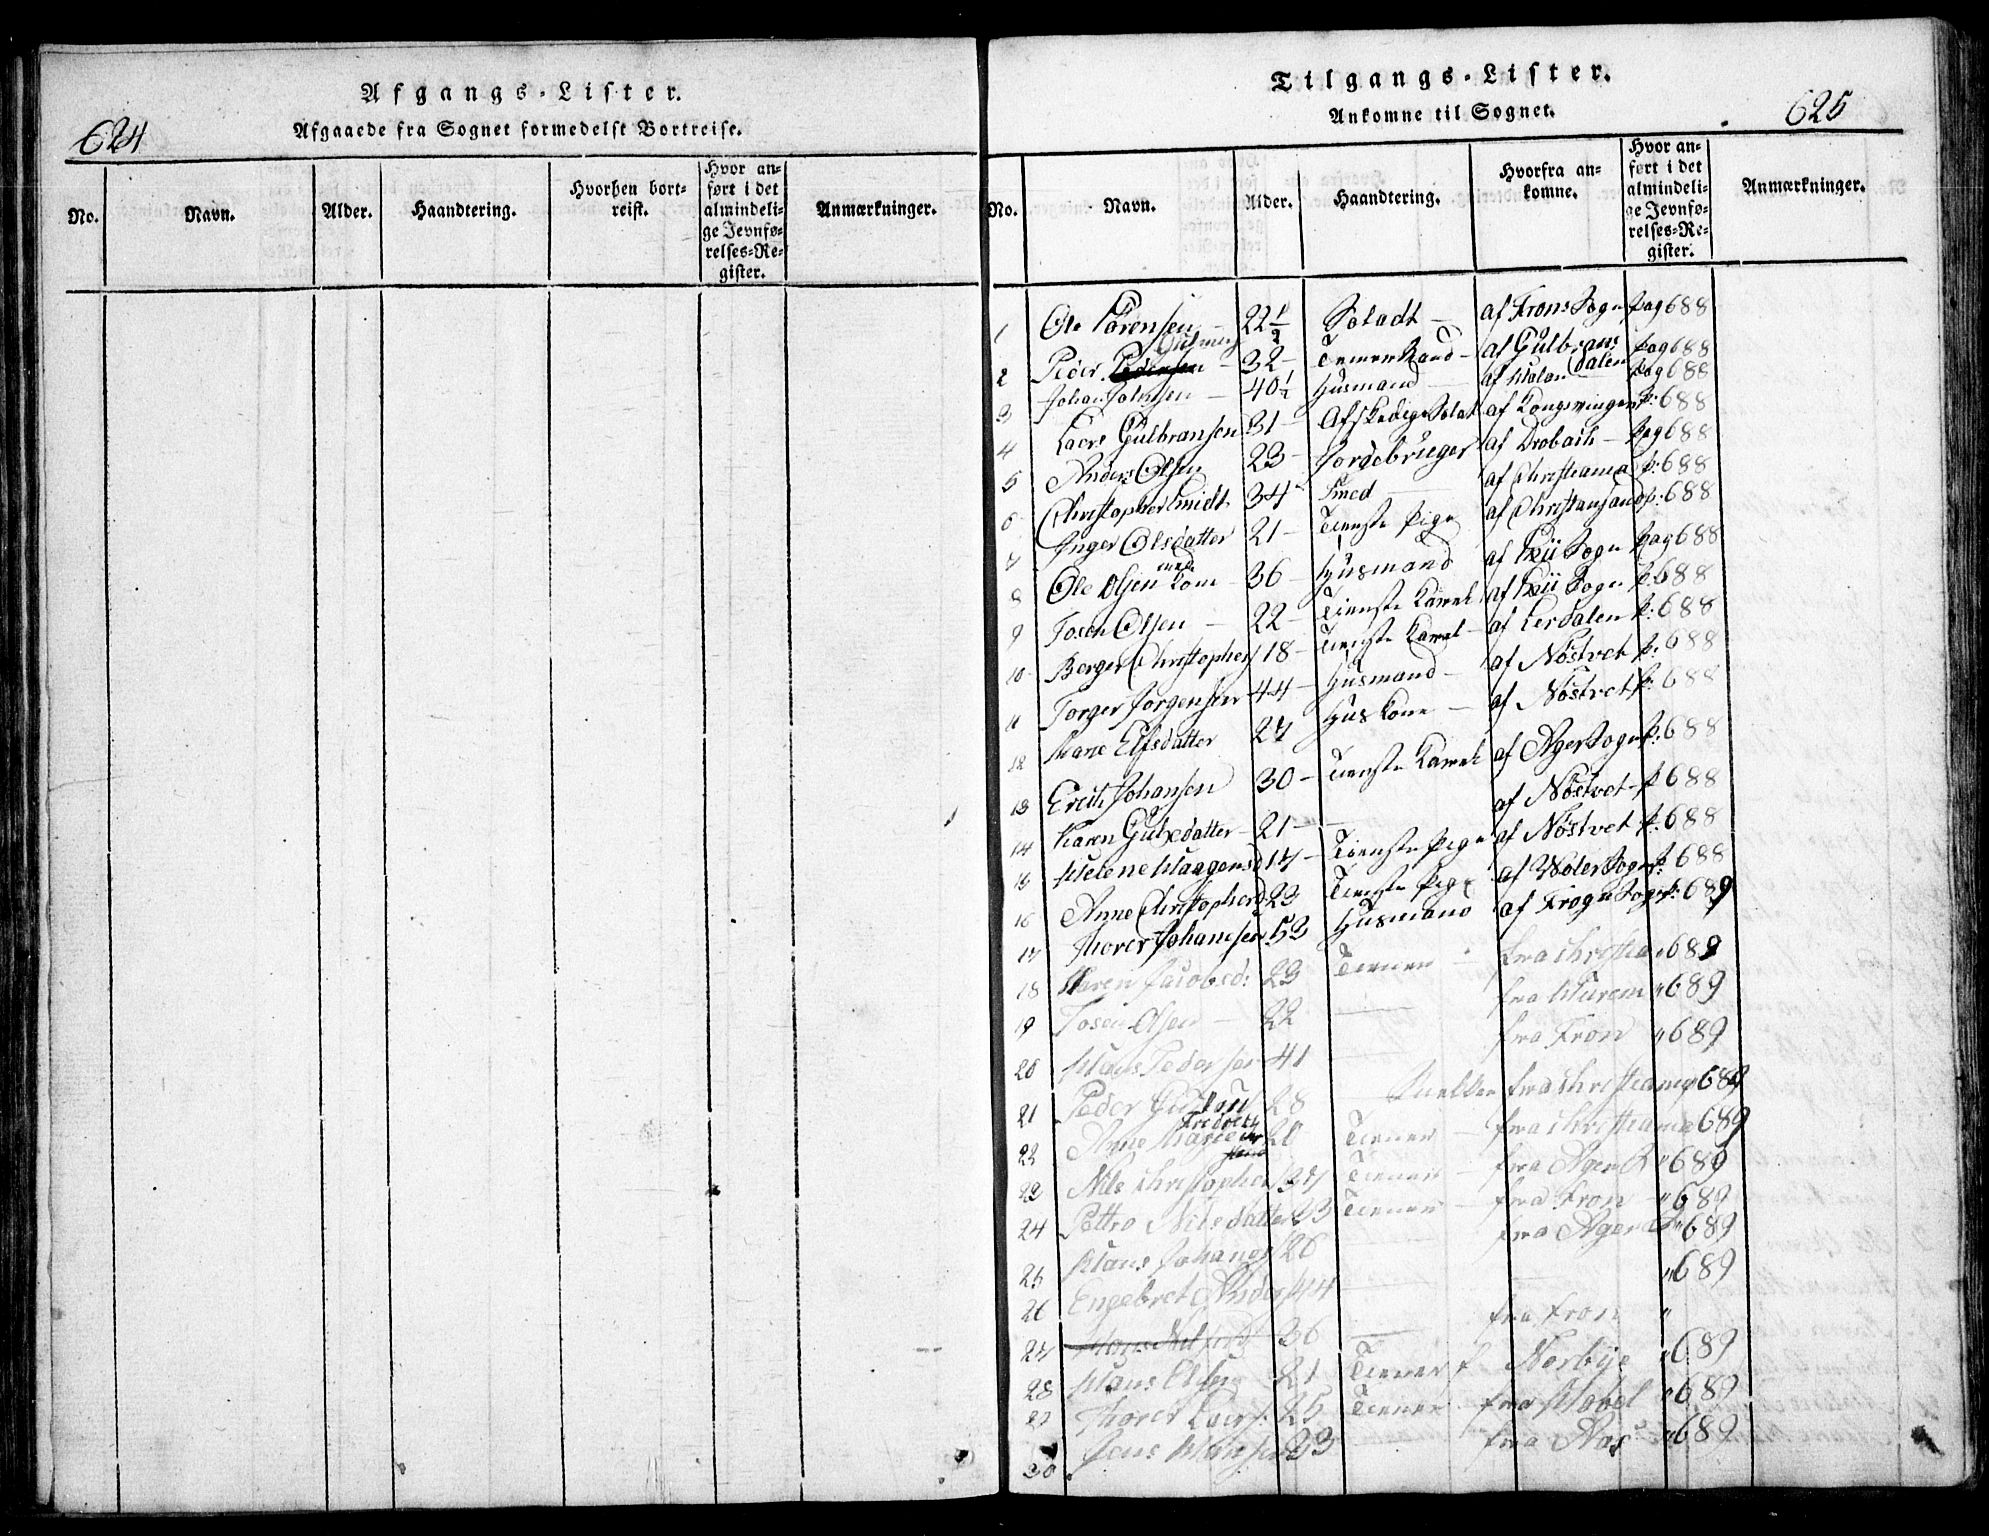 624
Afgangs-Lister.
Afgaaede fra Sognet formedelst Bortreise.
No. Navn. Alder. Haandtering. Hvorhen bortreist. Hvor anført i det almindelige Jevnførelses-Register. Anmærkninger.
Tilgangs-Lister.
Ankomne til Sognet.
625
No. Navn. Alder. Haandtering. Hvorfra ankomne. Hvor anført i det almindelige Jevnførelses-Register. Anmærkninger.
1 Ole Sörensen 22 1/2 Soladt af Frons Sogn pag 688
2 Peder 32 Tømerhand af Gulbrans dalen pag 688
3 Johan Johnsen 40 1/2 Husmand af pag 688
4 Lars Gulbransen 31 Afskediget Solat af Kongsvinger p: 688
5 Anders Olsen 23 Jordebruger af Drobach pag 688
6 Christopher Smidt 34 Smed af Christiania p: 688
7 Inger Olsdatter 21 Tieneste Pige af Christiansand p: 688
8 Ole Olsen med Kone 36 Husmand af Kii Sogn pag 688
9 Tosen Olsen 22 Tieneste Karel af Kii Sogn p: 688
10 Berger Christophers 18 Tieneste Karel af Lerdalen p: 688
11 Torger Jorgensen 44 Husmand af Nöstvet p: 688
12 Marie Elfsdatter 27 Huskone af Nöstvet p: 688
13 Erich Johansen 30 Tieneste Karel af Ager Sogn p: 688
14 Karen Gulsdatter 21 af Nöstvet p 688
15 Helene Haagensd 17 Tieneste Pige af Nöstvet p: 688
16 Anne Christophersd 23 Tieneste Pige af Woler Sogn p 688
17 Thorer Johanesen 53 Husmand af Frogn Sogn p: 689
18 Karen Jacobsd: 23 Tiener fra Christia " 689
19 Tosen Olsen 22 fra Hurem " 689
20 Hans Pedersen 41 fra Fron " 689
21 Peder 28 fra Christiania " 689
22 Anne Marie 20 Tiener fra Christiania 689
23 Nils Christopher 37 Tiener fra Ager " 689
24 Pettro Nilsdatter 23 Tiener fra Fron " 689
25 Hans Johanes 26 fra Ager " 689
26 Engebret Anders 44 " 689
27 36 fra Fron "
28 Hans Elsen 21 Tiener f Norbye " 689
29 Thorer Lars: 25 Tiener fra " 689
30 Jens Hansen 23 fra Aas " 689